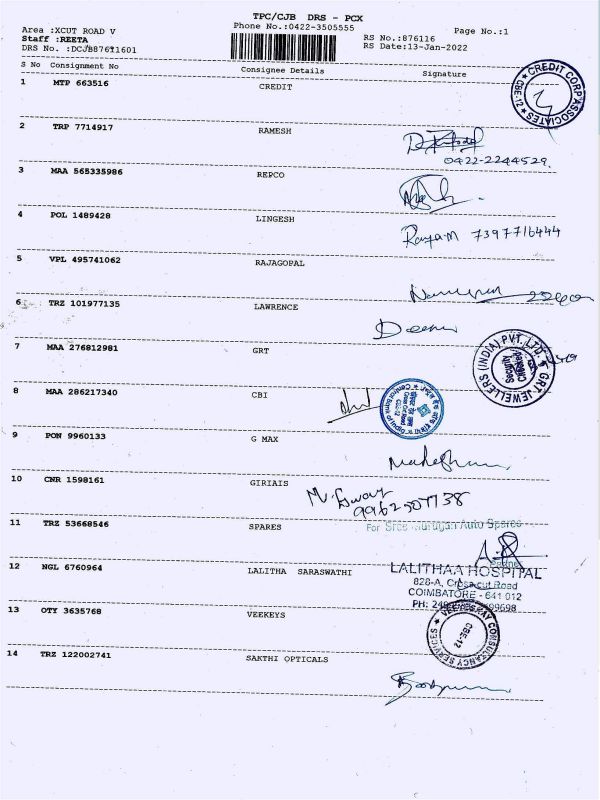 TPC/CJB DRS - PCX
Phone No.:0422-3505555
Page No.:1
Area :XCUT ROAD V
Staff :REETA
DRS No. :DCJB87611601
RS No.:876116
RS Date:13-Jan-2022
S No Consignment No Consignee Details Signature
1 MTP 663516 CREDIT
CREDIT CORP ASSOCIATES
CBE-12
2 TRP 7714917 RAMESH
0422-2244529.
3 MAA 565335986 REPCO
4 POL 1489428 LINGESH
7397716444
5 VPL 495741062 RAJAGOPAL
6 TRZ 101977135 LAWRENCE
7 MAA 276812981 GRT
GRT JEWELLERS (INDIA) PVT. LTD.
8 MAA 286217340 CBI
9 PON 9960133 G MAX
10 CNR 1598161 GIRIAIS
9962507738
11 TRZ 53668546 SPARES
For Sree Murugan Auto Spares
12 NGL 6760964 LALITHA SARASWATHI
LALITHAA HOSPITAL
828-A, Crosscut Road
COIMBATORE - 641 012
PH:
13 OTY 3635768 VEEKEYS
CONSULTANCY SERVICES
CBE-12
14 TRZ 122002741 SAKTHI OPTICALS